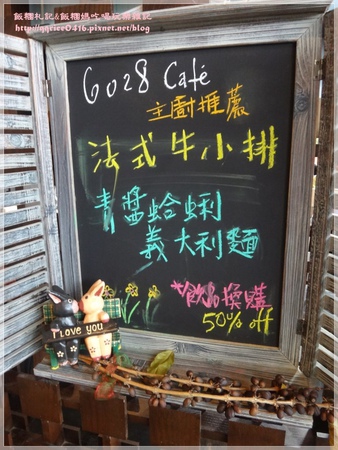 飯糰札記&飯糰媽吃喝玩樂雜記
http://qqrice0416.pixnet.net/blog
6028 Café
主廚推薦
法式牛小排
青醬蛤蜊
義大利麵
*飲品換購
50% off
I love you